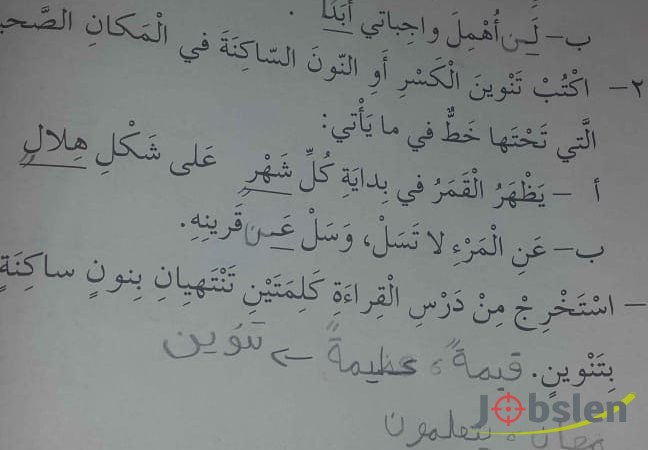 ب- لَـن أُهْمِلَ واجِباتي أَبَدًا .
٢- اكْتُبْ تَنْوينَ الْكَسْرِ أَوِ النّونَ السّاكِنَةَ في الْمَكانِ
الَّتي تَحْتَها خَطٌّ في ما يَأْتي:
أ - يَظْهَرُ الْقَمَرُ في بِدايَةِ كُلِّ شَهْرٍ عَلى شَكْلِ هِلالٍ
ب- عَنِ الْمَرْءِ لا تَسَلْ، وَسَلْ عَـن قَرينِهِ.
- اسْتَخْرِجْ مِنْ دَرْسِ الْقِراءَةِ كَلِمَتَيْنِ تَنْتَهِيانِ بِنونٍ ساكِنَةٍ
بِتَنْوينٍ. قيمةً، عظيمةً ← تنوين
Jobslen
يتعلمون